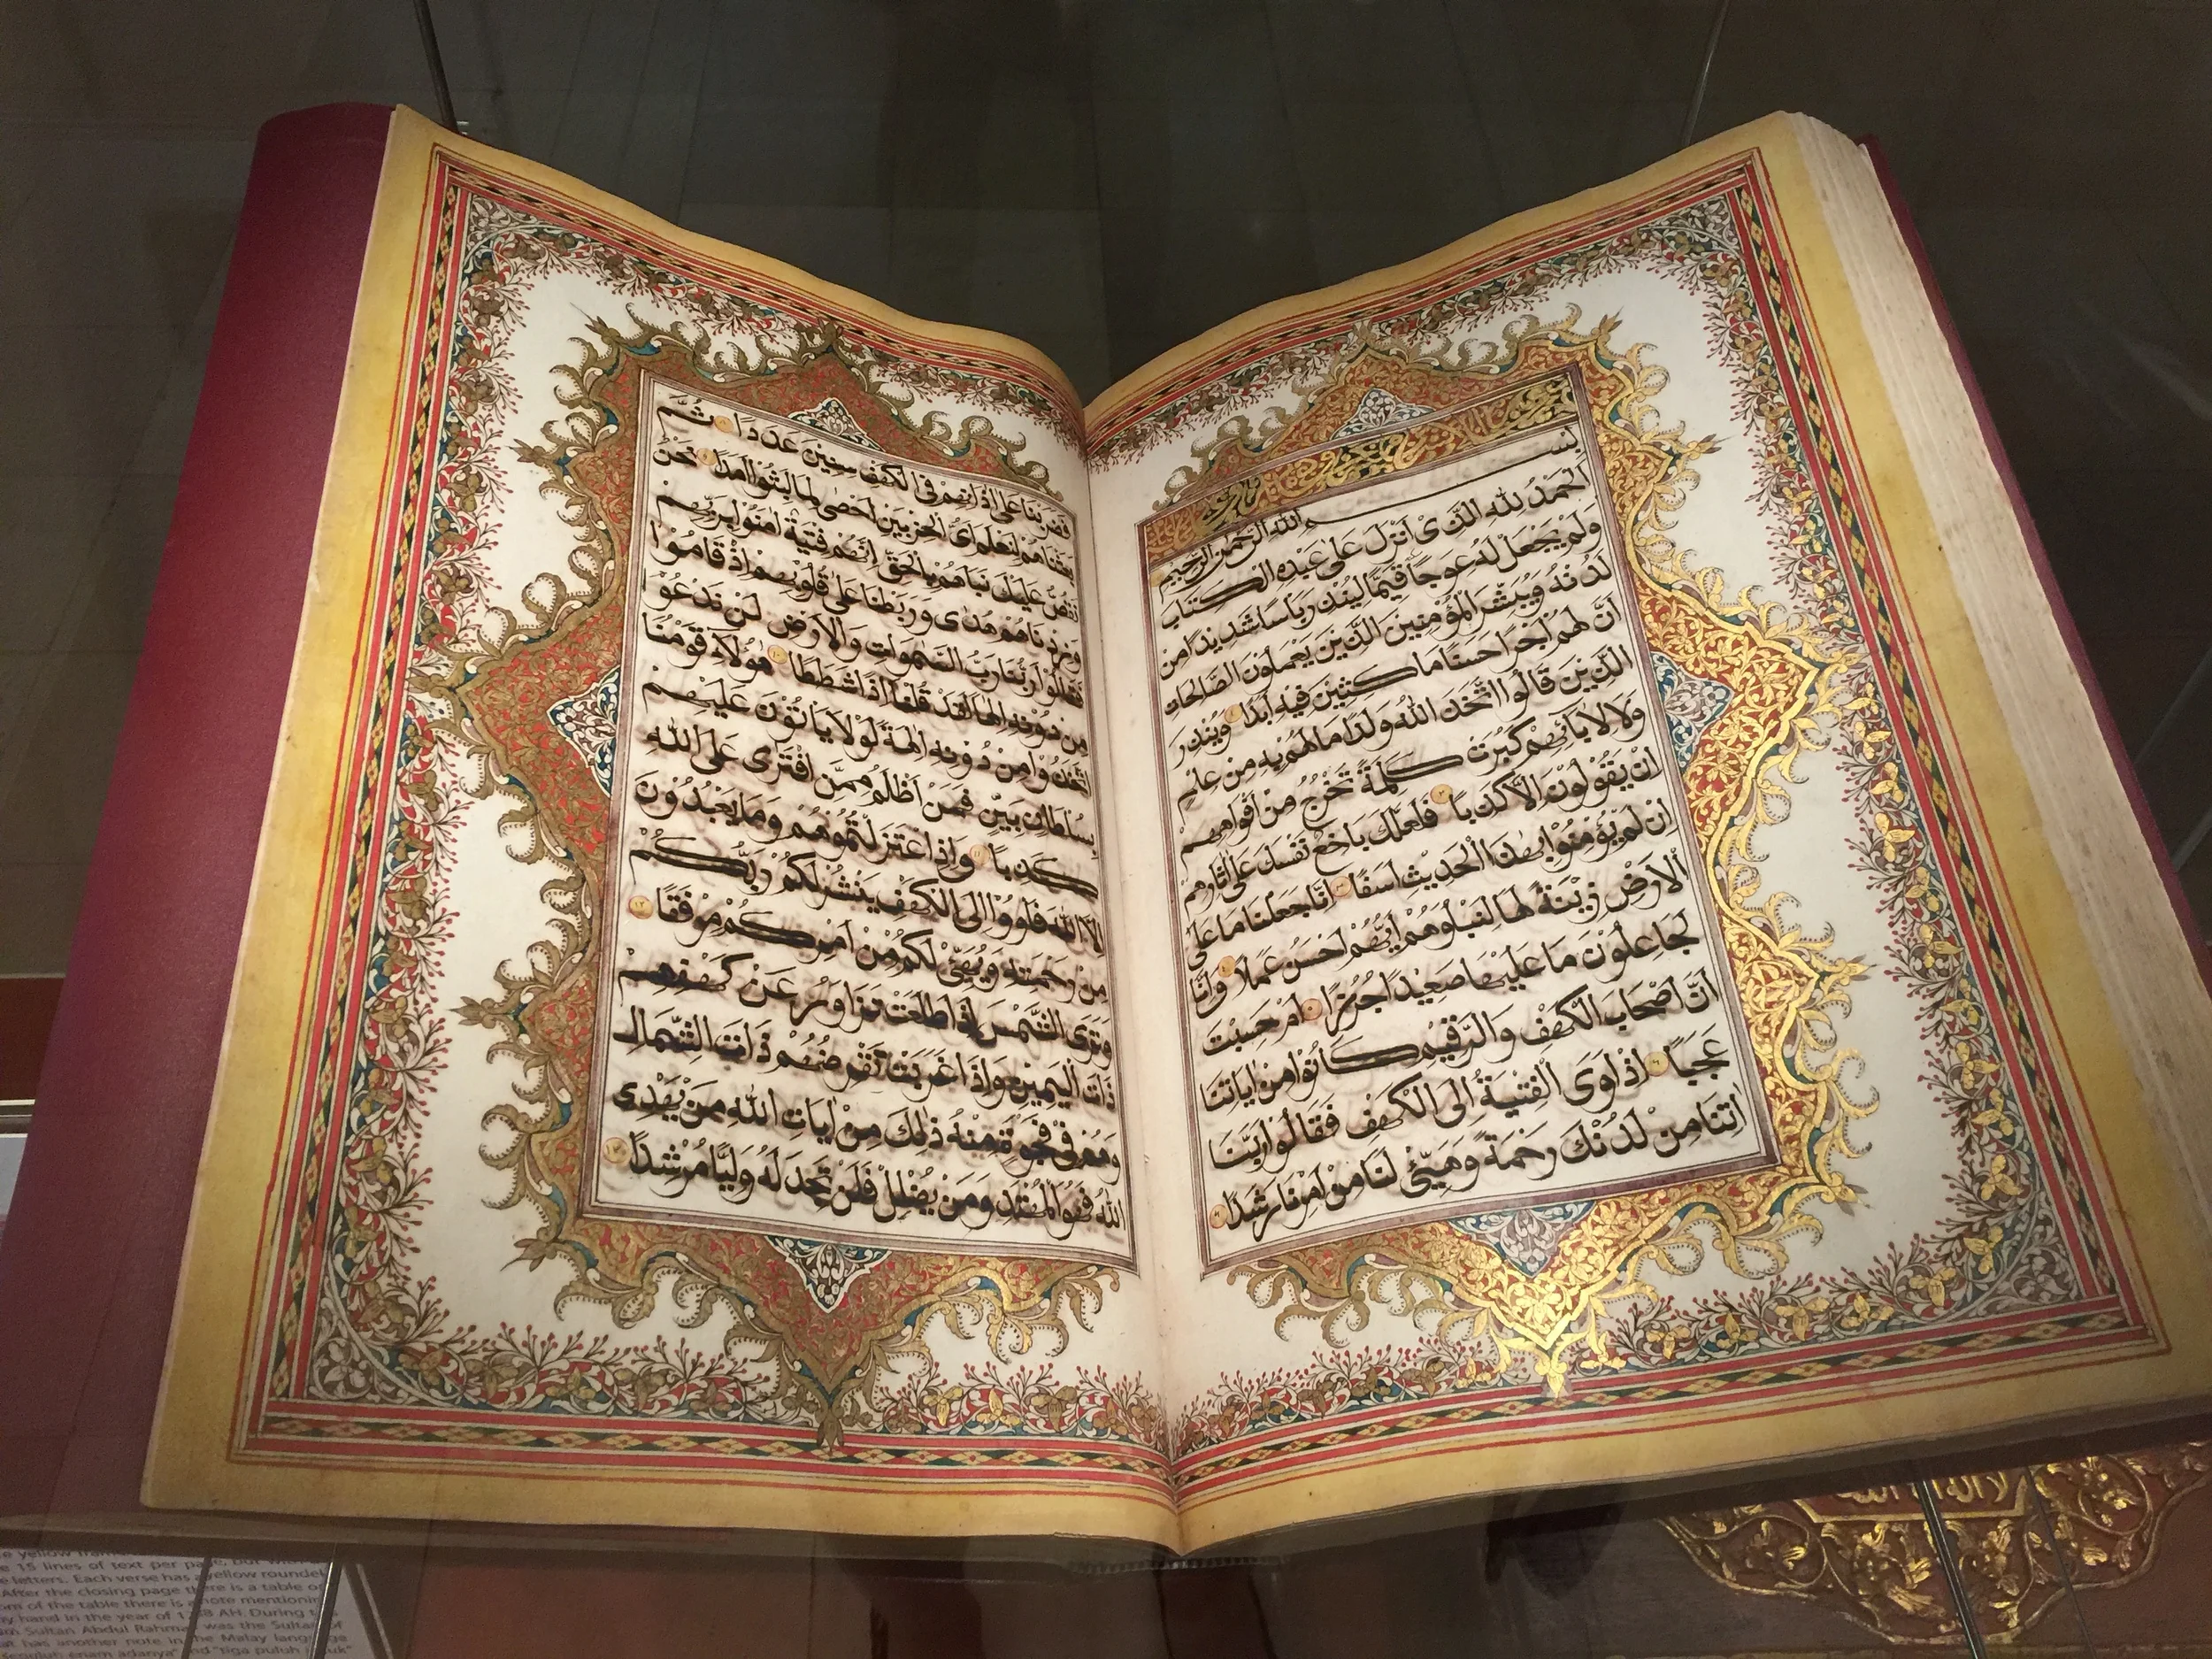 بِسْــــمِ اللهِ الرَّحْمٰنِ الرَّحِيْمِ
اَلْحَمْدُ لِلّٰهِ الَّذِىْ اَنْزَلَ عَلٰى عَبْدِهِ الْكِتَابَ
وَلَمْ يَجْعَلْ لَهُ عِوَجًا قَيِّمًا لِيُنْذِرَ بَاْسًا شَدِيْدًا مِنْ
لَدُنْهُ وَيُبَشِّرَ الْمُؤْمِنِيْنَ الَّذِيْنَ يَعْمَلُوْنَ الصَّالِحَاتِ
اَنَّ لَهُمْ اَجْرًا حَسَنًا مَاكِثِيْنَ فِيْهِ اَبَدًا وَيُنْذِرَ
الَّذِيْنَ قَالُوا اتَّخَذَ اللهُ وَلَدًا مَا لَهُمْ بِهِ مِنْ عِلْمٍ
وَلَا لِاٰبَائِهِمْ كَبُرَتْ كَلِمَةً تَخْرُجُ مِنْ اَفْوَاهِهِمْ
اِنْ يَقُوْلُوْنَ اِلَّا كَذِبًا فَلَعَلَّكَ بَاخِعٌ نَفْسَكَ عَلٰى اٰثَارِهِمْ
اِنْ لَمْ يُؤْمِنُوْا بِهٰذَا الْحَدِيْثِ اَسَفًا اِنَّا جَعَلْنَا مَا عَلَى
الْاَرْضِ زِيْنَةً لَهَا لِنَبْلُوَهُمْ اَيُّهُمْ اَحْسَنُ عَمَلًا وَاِنَّا
لَجَاعِلُوْنَ مَا عَلَيْهَا صَعِيْدًا جُرُزًا اَمْ حَسِبْتَ
اَنَّ اَصْحَابَ الْكَهْفِ وَالرَّقِيْمِ كَانُوْا مِنْ اٰيَاتِنَا
عَجَبًا اِذْ اَوَى الْفِتْيَةُ اِلَى الْكَهْفِ فَقَالُوْا رَبَّنَا
اٰتِنَا مِنْ لَدُنْكَ رَحْمَةً وَهَيِّئْ لَنَا مِنْ اَمْرِنَا رَشَدًا
فَضَرَبْنَا عَلٰى اٰذَانِهِمْ فِى الْكَهْفِ سِنِيْنَ عَدَدًا ثُمَّ
بَعَثْنَاهُمْ لِنَعْلَمَ اَىُّ الْحِزْبَيْنِ اَحْصٰى لِمَا لَبِثُوْا اَمَدًا نَحْنُ
نَقُصُّ عَلَيْكَ نَبَاَهُمْ بِالْحَقِّ اِنَّهُمْ فِتْيَةٌ اٰمَنُوْا بِرَبِّهِمْ
وَزِدْنَاهُمْ هُدًى وَرَبَطْنَا عَلٰى قُلُوْبِهِمْ اِذْ قَامُوْا
فَقَالُوْا رَبُّنَا رَبُّ السَّمٰوَاتِ وَالْاَرْضِ لَنْ نَدْعُوَا
مِنْ دُوْنِهِ اِلٰهًا لَقَدْ قُلْنَا اِذًا شَطَطًا هٰؤُلَاءِ قَوْمُنَا
اتَّخَذُوْا مِنْ دُوْنِهِ اٰلِهَةً لَوْلَا يَاْتُوْنَ عَلَيْهِمْ
بِسُلْطَانٍ بَيِّنٍ فَمَنْ اَظْلَمُ مِمَّنِ افْتَرٰى عَلَى اللهِ
كَذِبًا وَاِذِ اعْتَزَلْتُمُوْهُمْ وَمَا يَعْبُدُوْنَ
اِلَّا اللهَ فَأْوُوْا اِلَى الْكَهْفِ يَنْشُرْ لَكُمْ رَبُّكُمْ
مِنْ رَحْمَتِهِ وَيُهَيِّئْ لَكُمْ مِنْ اَمْرِكُمْ مِرْفَقًا
وَتَرَى الشَّمْسَ اِذَا طَلَعَتْ تَزَاوَرُ عَنْ كَهْفِهِمْ
ذَاتَ الْيَمِيْنِ وَاِذَا غَرَبَتْ تَقْرِضُهُمْ ذَاتَ الشِّمَالِ
وَهُمْ فِىْ فَجْوَةٍ مِنْهُ ذٰلِكَ مِنْ اٰيَاتِ اللهِ مَنْ يَهْدِى
اللهُ فَهُوَ الْمُهْتَدِ وَمَنْ يُضْلِلْ فَلَنْ تَجِدَ لَهُ وَلِيًّا مُرْشِدًا
e yellow
e 15 lines of text per page, but
e letters. Each verse has a yellow roundel
After the closing page there is a table or
om of the table there is a note mentionin
y hand in the year of AH. During
m Sultan Abdul Rahman was the Sultan of
at has another note in the Malay language
adanya" and "tiga puluh